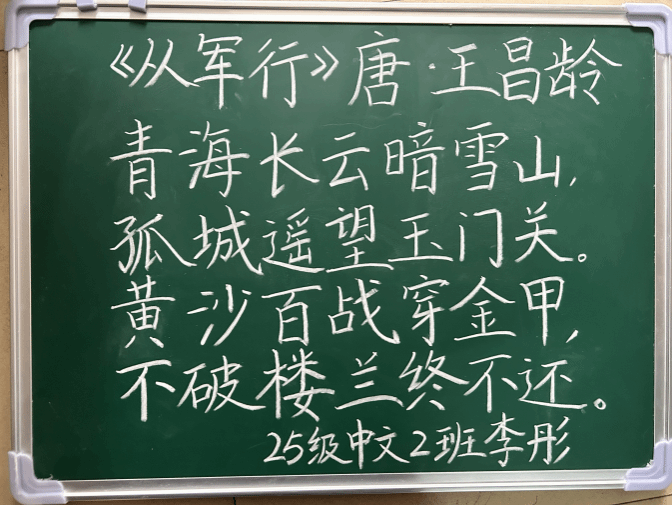 《从军行》唐·王昌龄
青海长云暗雪山,
孤城遥望玉门关。
黄沙百战穿金甲,
不破楼兰终不还。
25级中文2班李彤